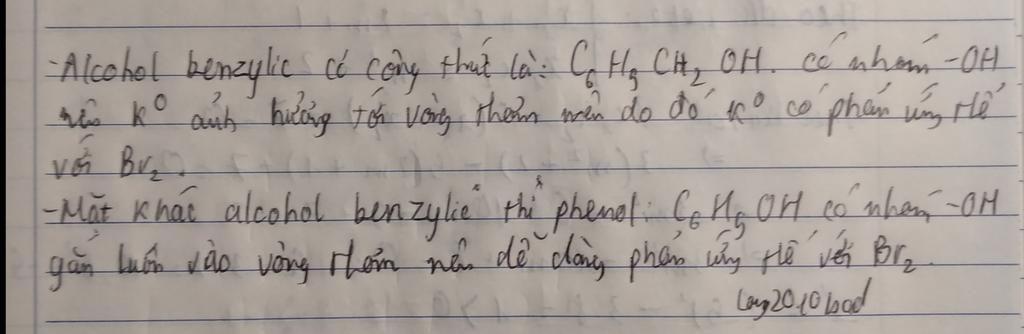 -Alcohol benzylic có công thức là: C6H5CH2OH. có nhóm -OH
nên k° ảnh hưởng tới vòng thơm nên do đó k° có phản ứng thế
với Br2.
-Mặt khác alcohol benzylic thì phenol: C6H5OH có nhóm -OH
gắn luôn vào vòng thơm nên dễ dàng phản ứng thế với Br2.